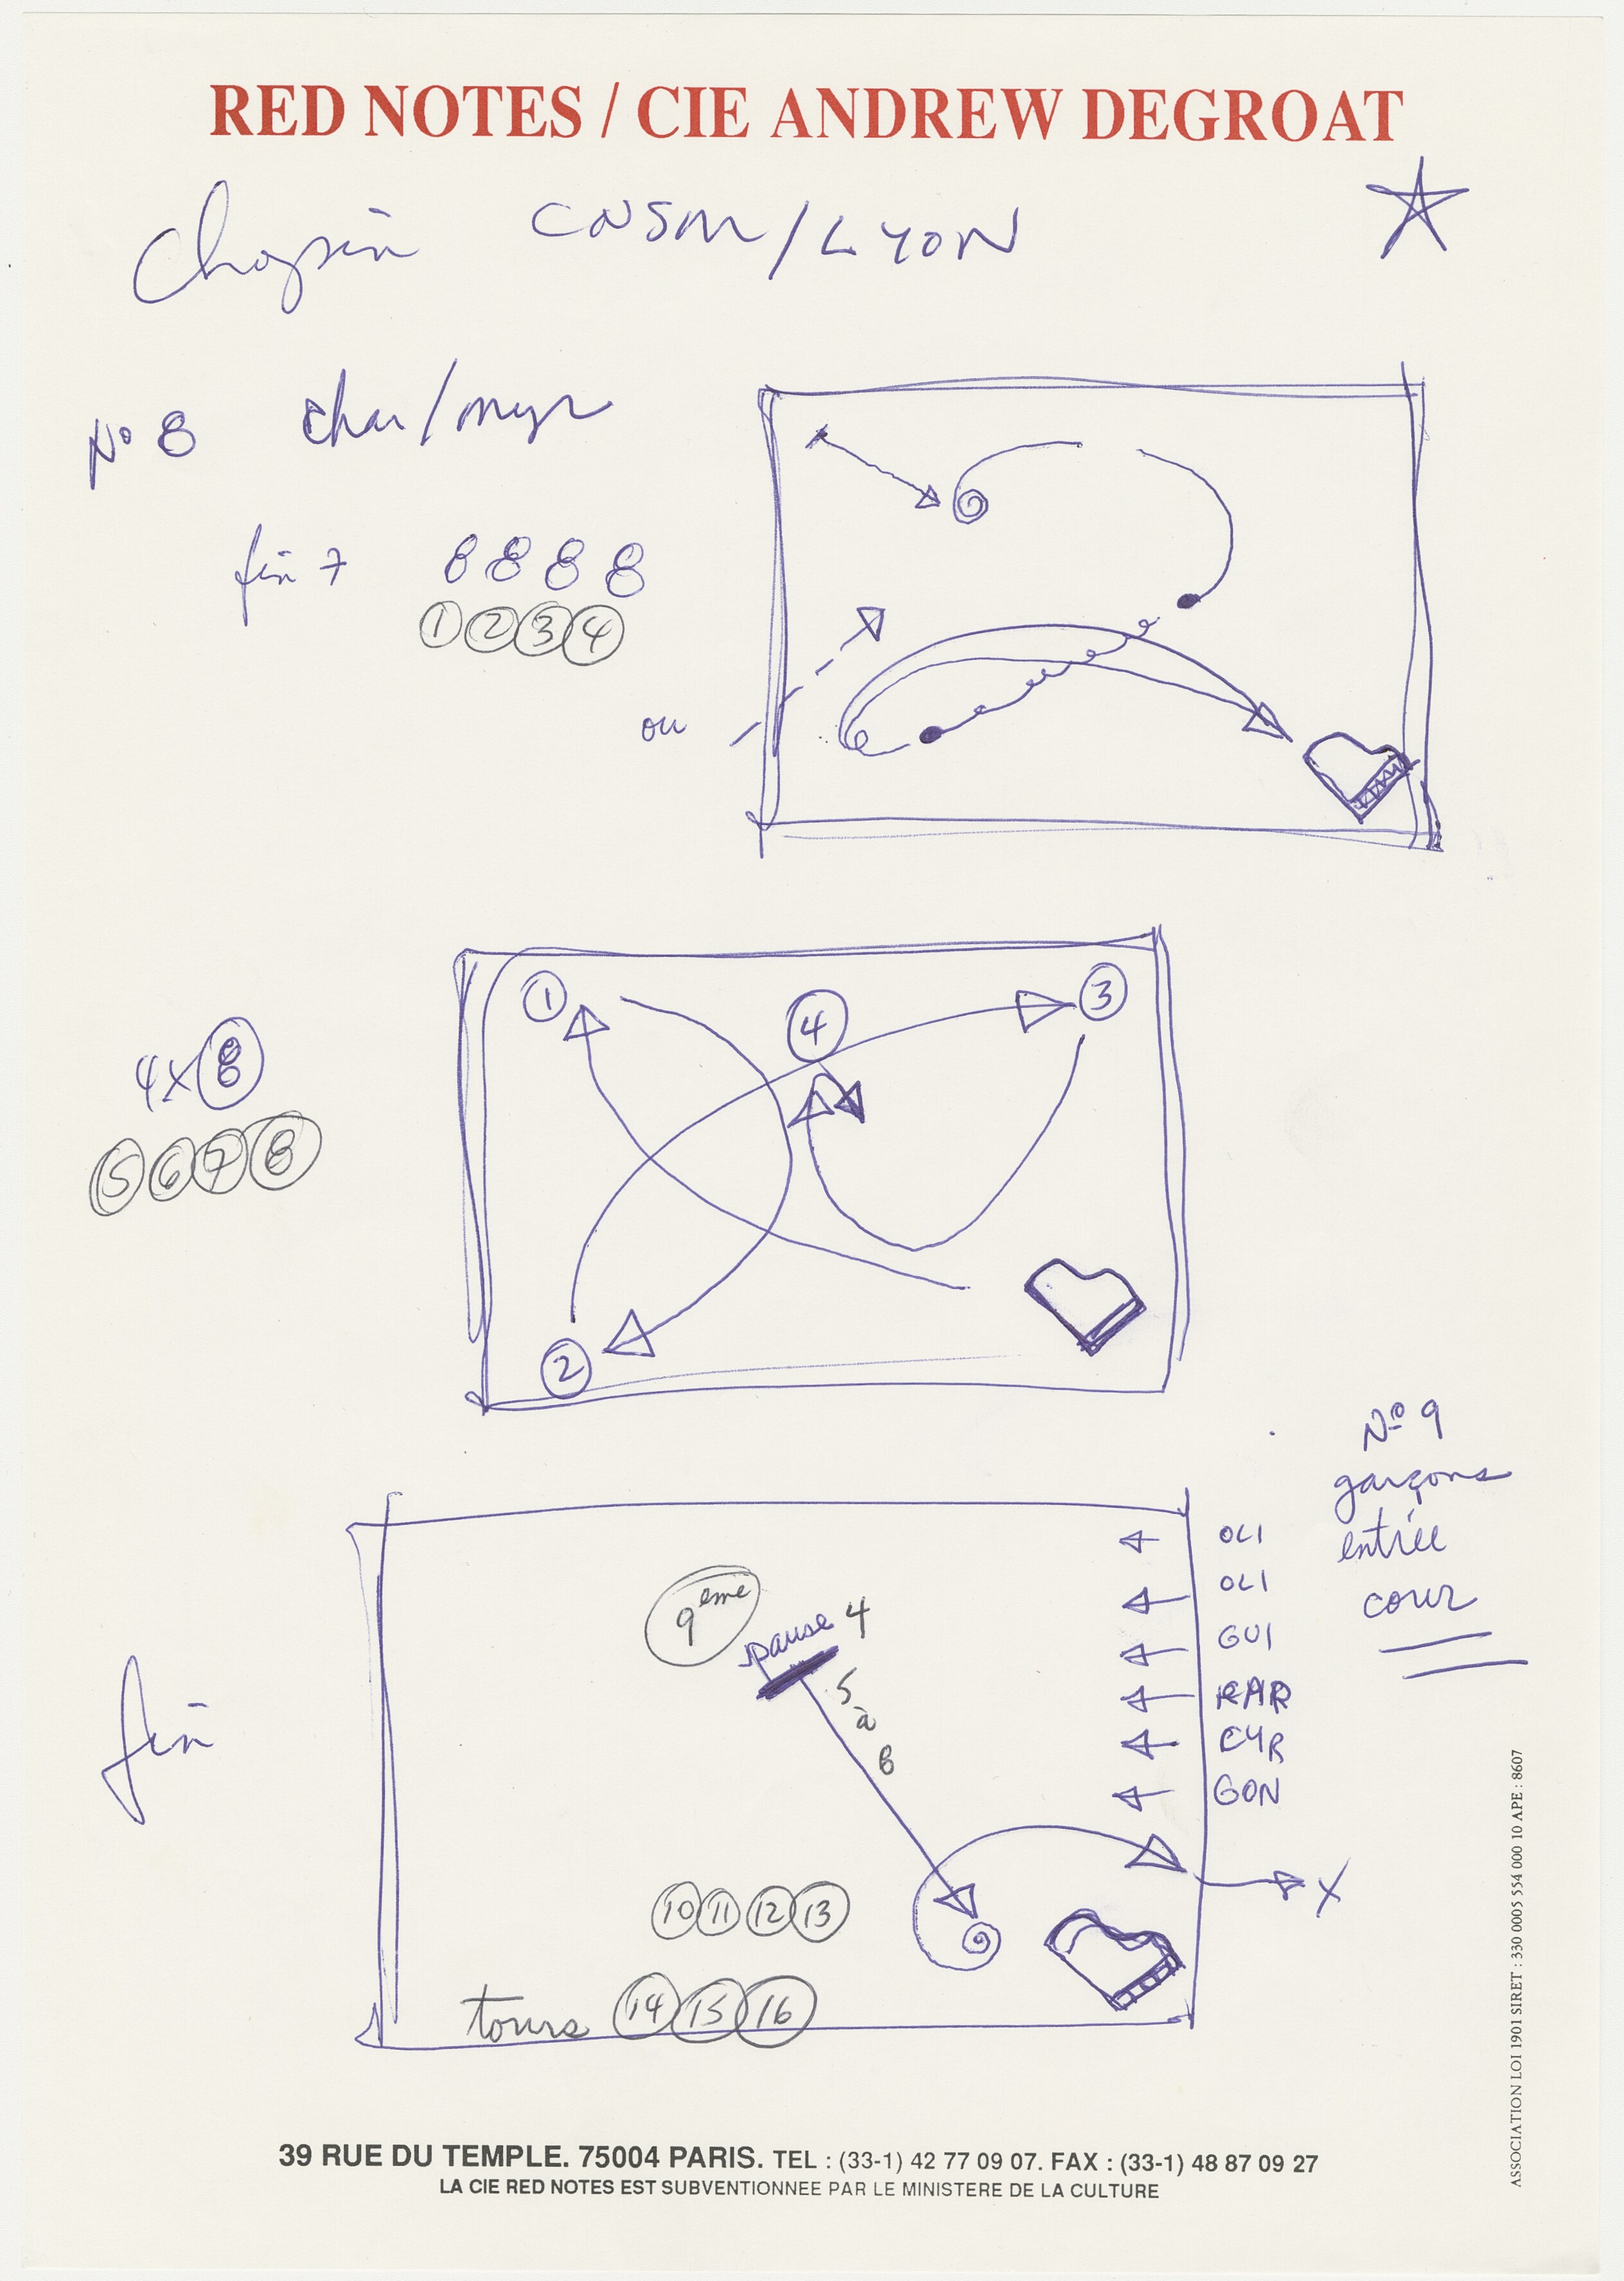 RED NOTES / CIE ANDREW DEGROAT
Chopin CNSM/LYON
N° 8 char/myr
fin 7 8 8 8 8
1 2 3 4
ou
1 4 3
4x8
5 6 7 8
2
N° 9
garçons
entrée
cour
OLI
OLI
GUI
RAR
CYR
GON
9eme
pause 4
5
à
8
fin
X
10 11 12 13
tours 14 15 16
39 RUE DU TEMPLE. 75004 PARIS. TEL : (33-1) 42 77 09 07. FAX : (33-1) 48 87 09 27
LA CIE RED NOTES EST SUBVENTIONNEE PAR LE MINISTERE DE LA CULTURE
ASSOCIATION LOI 1901 SIRET : 330 0005 554 000 10 APE : 8607